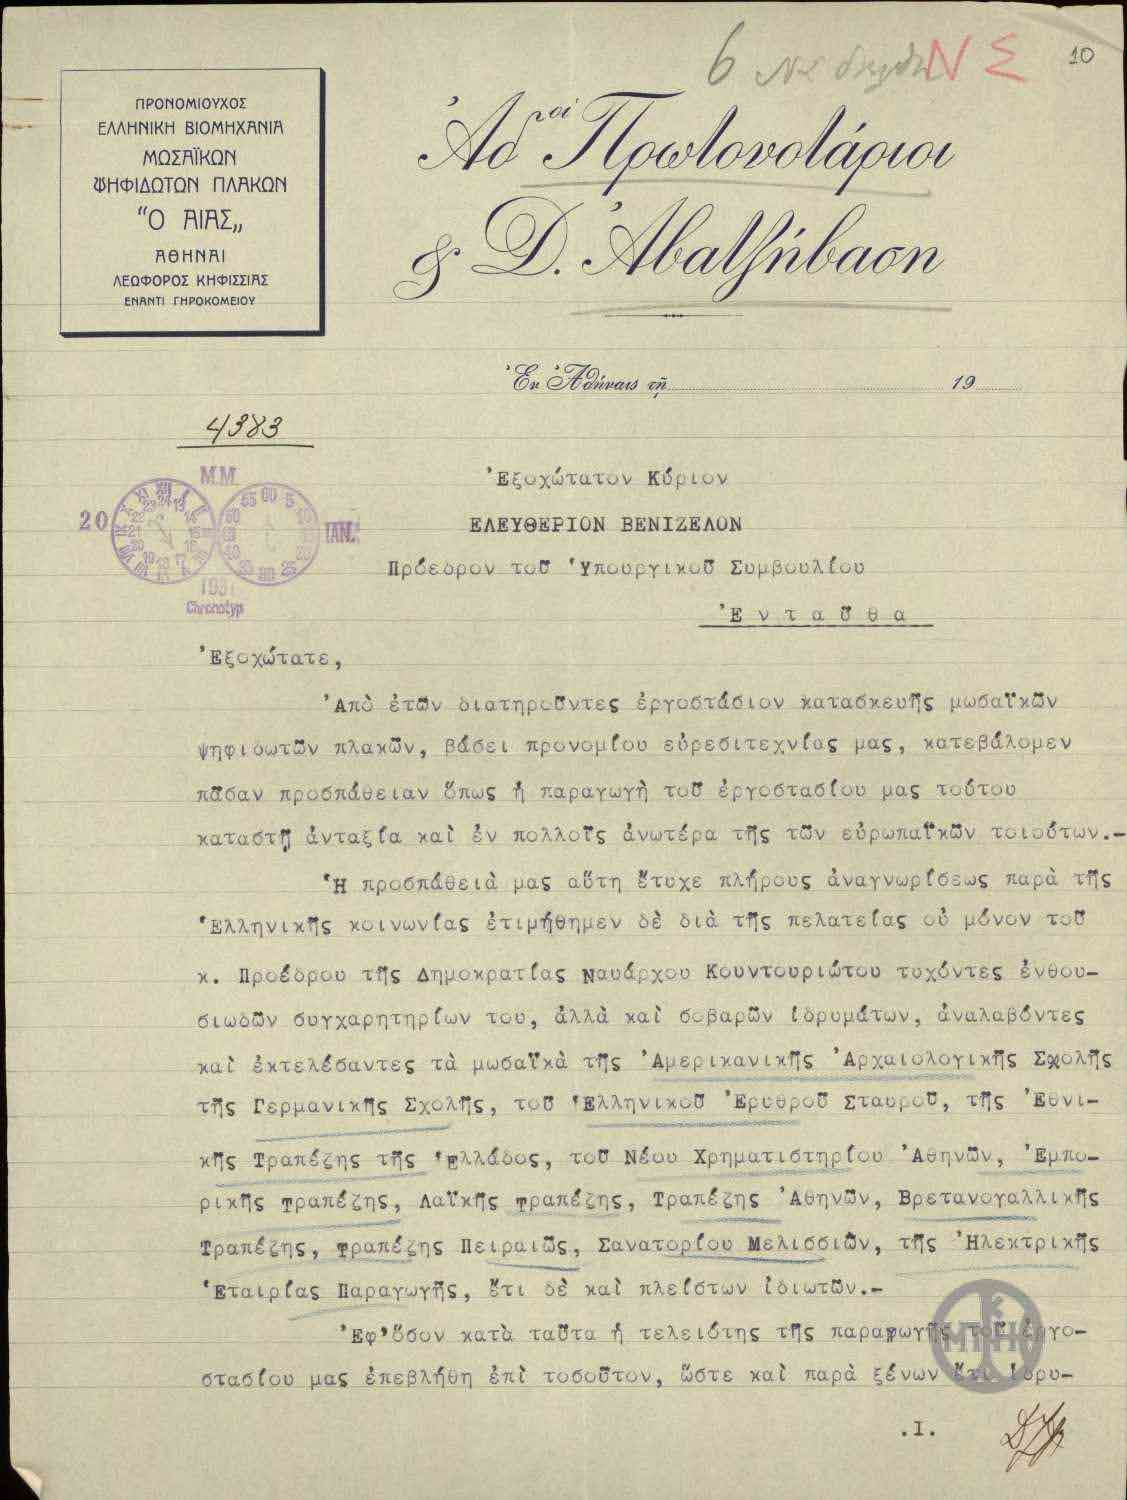 10
6
Ν Σ
ΠΡΟΝΟΜΙΟΥΧΟΣ
ΕΛΛΗΝΙΚΗ ΒΙΟΜΗΧΑΝΙΑ
ΜΩΣΑΪΚΩΝ
ΨΗΦΙΔΩΤΩΝ ΠΛΑΚΩΝ
"Ο ΑΙΑΣ„
ΑΘΗΝΑΙ
ΛΕΩΦΟΡΟΣ ΚΗΦΙΣΣΙΑΣ
ΕΝΑΝΤΙ ΓΗΡΟΚΟΜΕΙΟΥ
Ἀδ^οί Πρωτονοτάριοι
& Δ. Ἀβατζήβαση
Ἐν Ἀθήναις τῇ 19
4383
ΜΜ
20 ΙΑΝ.
Chronotyp
Ἐξοχώτατον Κύριον
ΕΛΕΥΘΕΡΙΟΝ ΒΕΝΙΖΕΛΟΝ
Πρόεδρον τοῦ Ὑπουργικοῦ Συμβουλίου
Ἐ ν τ α ῦ θ α
Ἐξοχώτατε,
Ἀπὸ ἐτῶν διατηροῦντες ἐργοστάσιον κατασκευῆς μωσαϊκῶν
ψηφιδωτῶν πλακῶν, βάσει προνομίου εὑρεσιτεχνίας μας, κατεβάλομεν
πᾶσαν προσπάθειαν ὅπως ἡ παραγωγὴ τοῦ ἐργοστασίου μας τούτου
καταστῇ ἀνταξία καὶ ἐν πολλοῖς ἀνωτέρα τῆς τῶν εὐρωπαϊκῶν τοιούτων.-
Ἡ προσπάθειά μας αὕτη ἔτυχε πλήρους ἀναγνωρίσεως παρὰ τῆς
Ἑλληνικῆς κοινωνίας ἐτιμήθημεν δὲ διὰ τῆς πελατείας οὐ μόνον τοῦ
κ. Προέδρου τῆς Δημοκρατίας Ναυάρχου Κουντουριώτου τυχόντες ἐνθου-
σιωδῶν συγχαρητηρίων του, ἀλλὰ καὶ σοβαρῶν ἱδρυμάτων, ἀναλαβόντες
καὶ ἐκτελέσαντες τὰ μωσαϊκὰ τῆς Ἀμερικανικῆς Ἀρχαιολογικῆς Σχολῆς
τῆς Γερμανικῆς Σχολῆς, τοῦ Ἑλληνικοῦ Ἐρυθροῦ Σταυροῦ, τῆς Ἐθνι-
κῆς Τραπέζης τῆς Ἑλλάδος, τοῦ Νέου Χρηματιστηρίου Ἀθηνῶν, Ἐμπο-
ρικῆς Τραπέζης, Λαϊκῆς Τραπέζης, Τραπέζης Ἀθηνῶν, Βρετανογαλλικῆς
Τραπέζης, Τραπέζης Πειραιῶς, Σανατορίου Μελισσιῶν, τῆς Ἠλεκτρικῆς
Ἑταιρίας Παραγωγῆς, ἔτι δὲ καὶ πλείστων ἰδιωτῶν.-
Ἐφ'ὅσον κατὰ ταῦτα ἡ τελειότης τῆς παραγωγῆς τοῦ ἐργο-
στασίου μας ἐπεβλήθη ἐπὶ τοσοῦτον, ὥστε καὶ παρὰ ξένων ἔτι ἱδρυ-
.Ι.